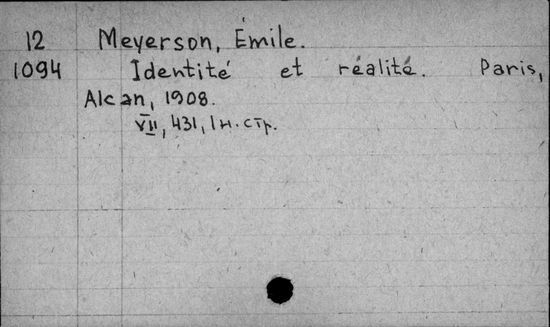 12 Meyerson, Émile.
1094 Identité et réalité. Paris,
Alcan, 1908.
VII, 431, 1 н. стр.